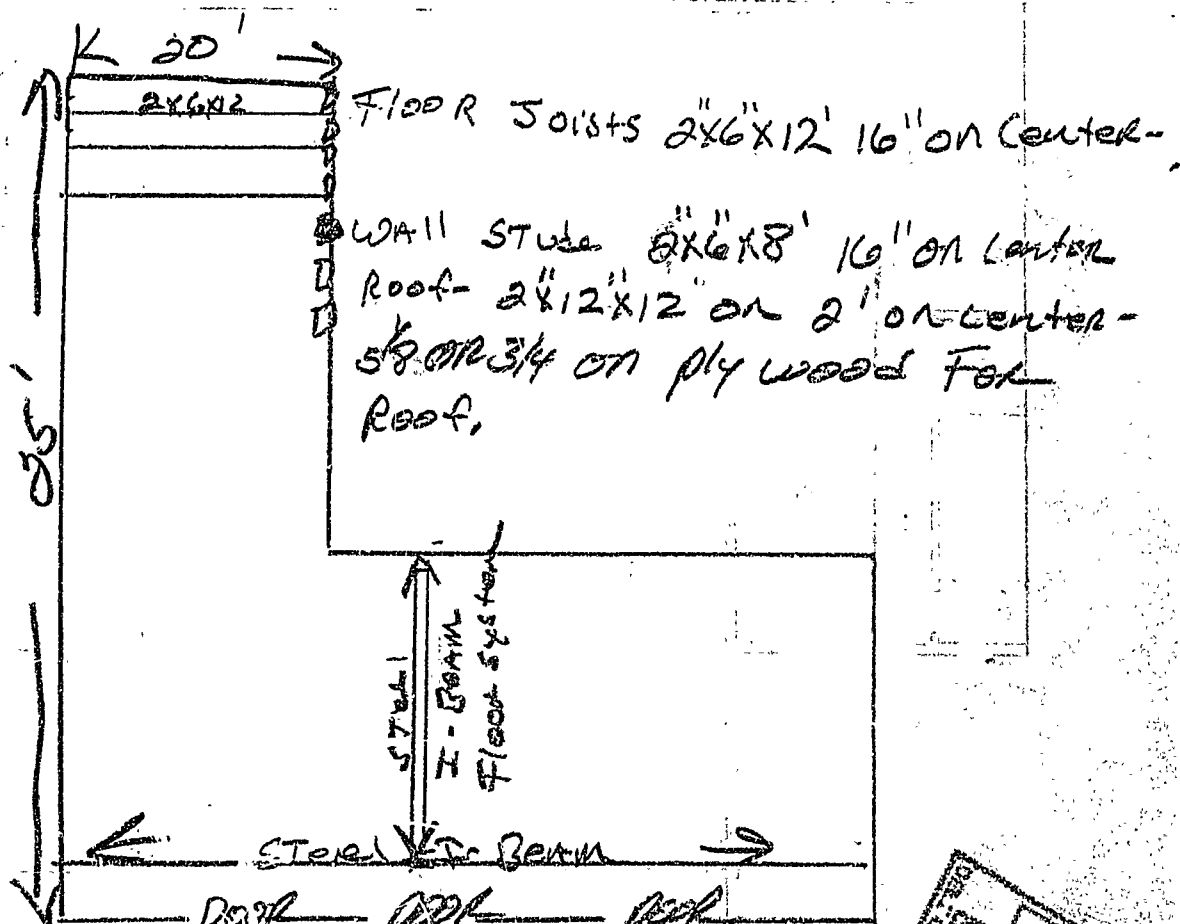 20'
2x6x12
Floor Joists 2"x6"x12' 16" on Center-
Wall Studs 2"x6"x8' 16" on Center
Roof- 2"x12"x12" on 2' on center-
5/8 OR 3/4 on plywood For
Roof.
25'
Steel
I-Beam
Floor System
Steel I-Beam
Door Door Door